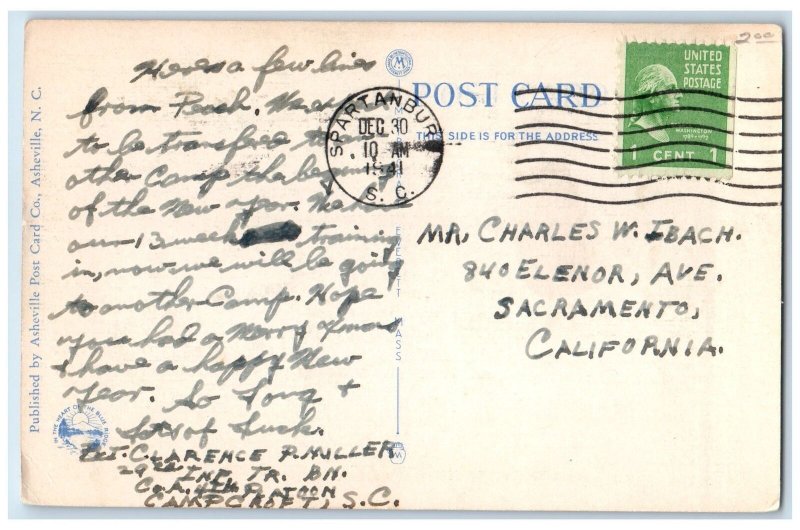 Heres a few lines
from Pvt.
to be transfered to
other Camp the beginning
of the New Year. We have
our 13 week training
in, now we will be going
to another Camp. Hope
you had a Merry Xmas
& have a happy New
Year. So Long &
lots of luck.
Pvt. CLARENCE P. MULLER
29th INF. TR. BN.
Co. A. 4th PLATOON
CAMP CROFT, S.C.
Published by Asheville Post Card Co., Asheville, N. C.
IN THE HEART OF THE BLUE RIDGE
POST CARD
THIS SIDE IS FOR THE ADDRESS
SPARTANBURG
DEC 30
10 AM
1941
S. C.
UNITED
STATES
POSTAGE
WASHINGTON
1 CENT 1
2 00
MR. CHARLES W. IBACH.
840 ELENOR, AVE.
SACRAMENTO,
CALIFORNIA.
EVERETT MASS